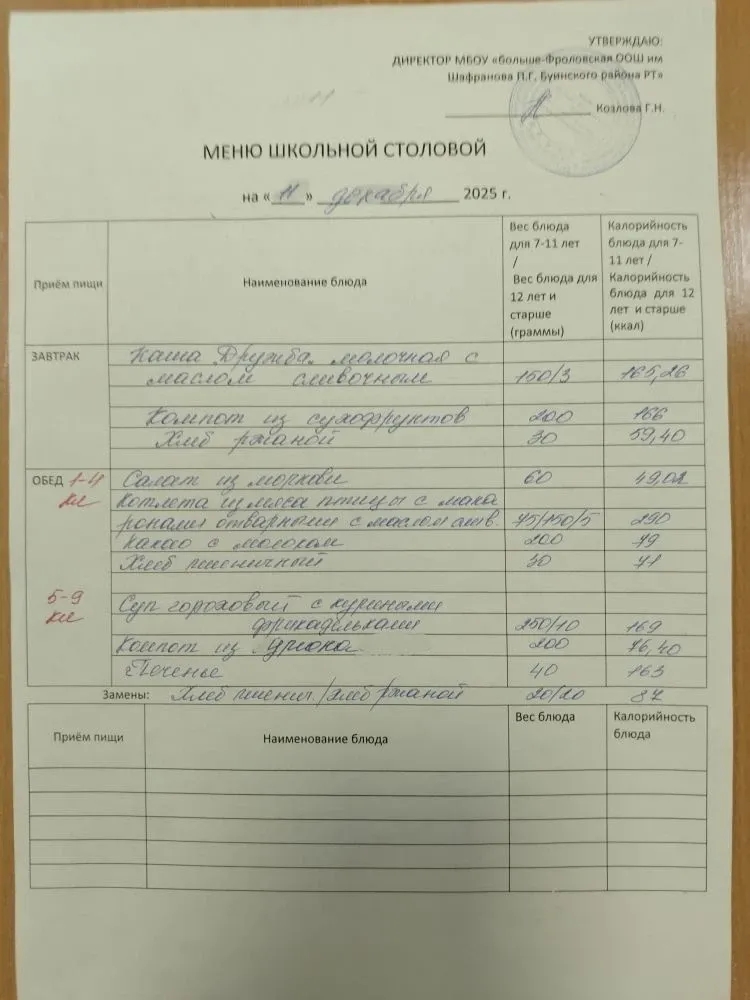 УТВЕРЖДАЮ:
ДИРЕКТОР МБОУ «больше-Фроловская ООШ им
Шафранова П.Г. Буинского района РТ»
Козлова Г.Н.
МЕНЮ ШКОЛЬНОЙ СТОЛОВОЙ
на «11» декабря 2025 г.
Приём пищи Наименование блюда Вес блюда для 7-11 лет / Вес блюда для 12 лет и старше (граммы) Калорийность блюда для 7-11 лет / Калорийность блюда для 12 лет и старше (ккал)
ЗАВТРАК Каша „Дружба„ молочная с
маслом сливочным 150/3 165,26
Компот из сухофрунтов 200 166
Хлеб ржаной 30 59,40
ОБЕД 1-4 кл Салат из моркови 60 49,02
Котлета из мяса птицы с мака
ронами отварными с маслом слив. 75/150/5 290
Какао с молоком 200 79
Хлеб пшеничный 30 71
5-9 кл Суп гороховый с куриными
фрикадельками 250/10 169
Компот из 200 76,40
Печенье 40 163
Замены: Хлеб пшенич./хлеб ржаной 20/20 87
Приём пищи Наименование блюда Вес блюда Калорийность блюда